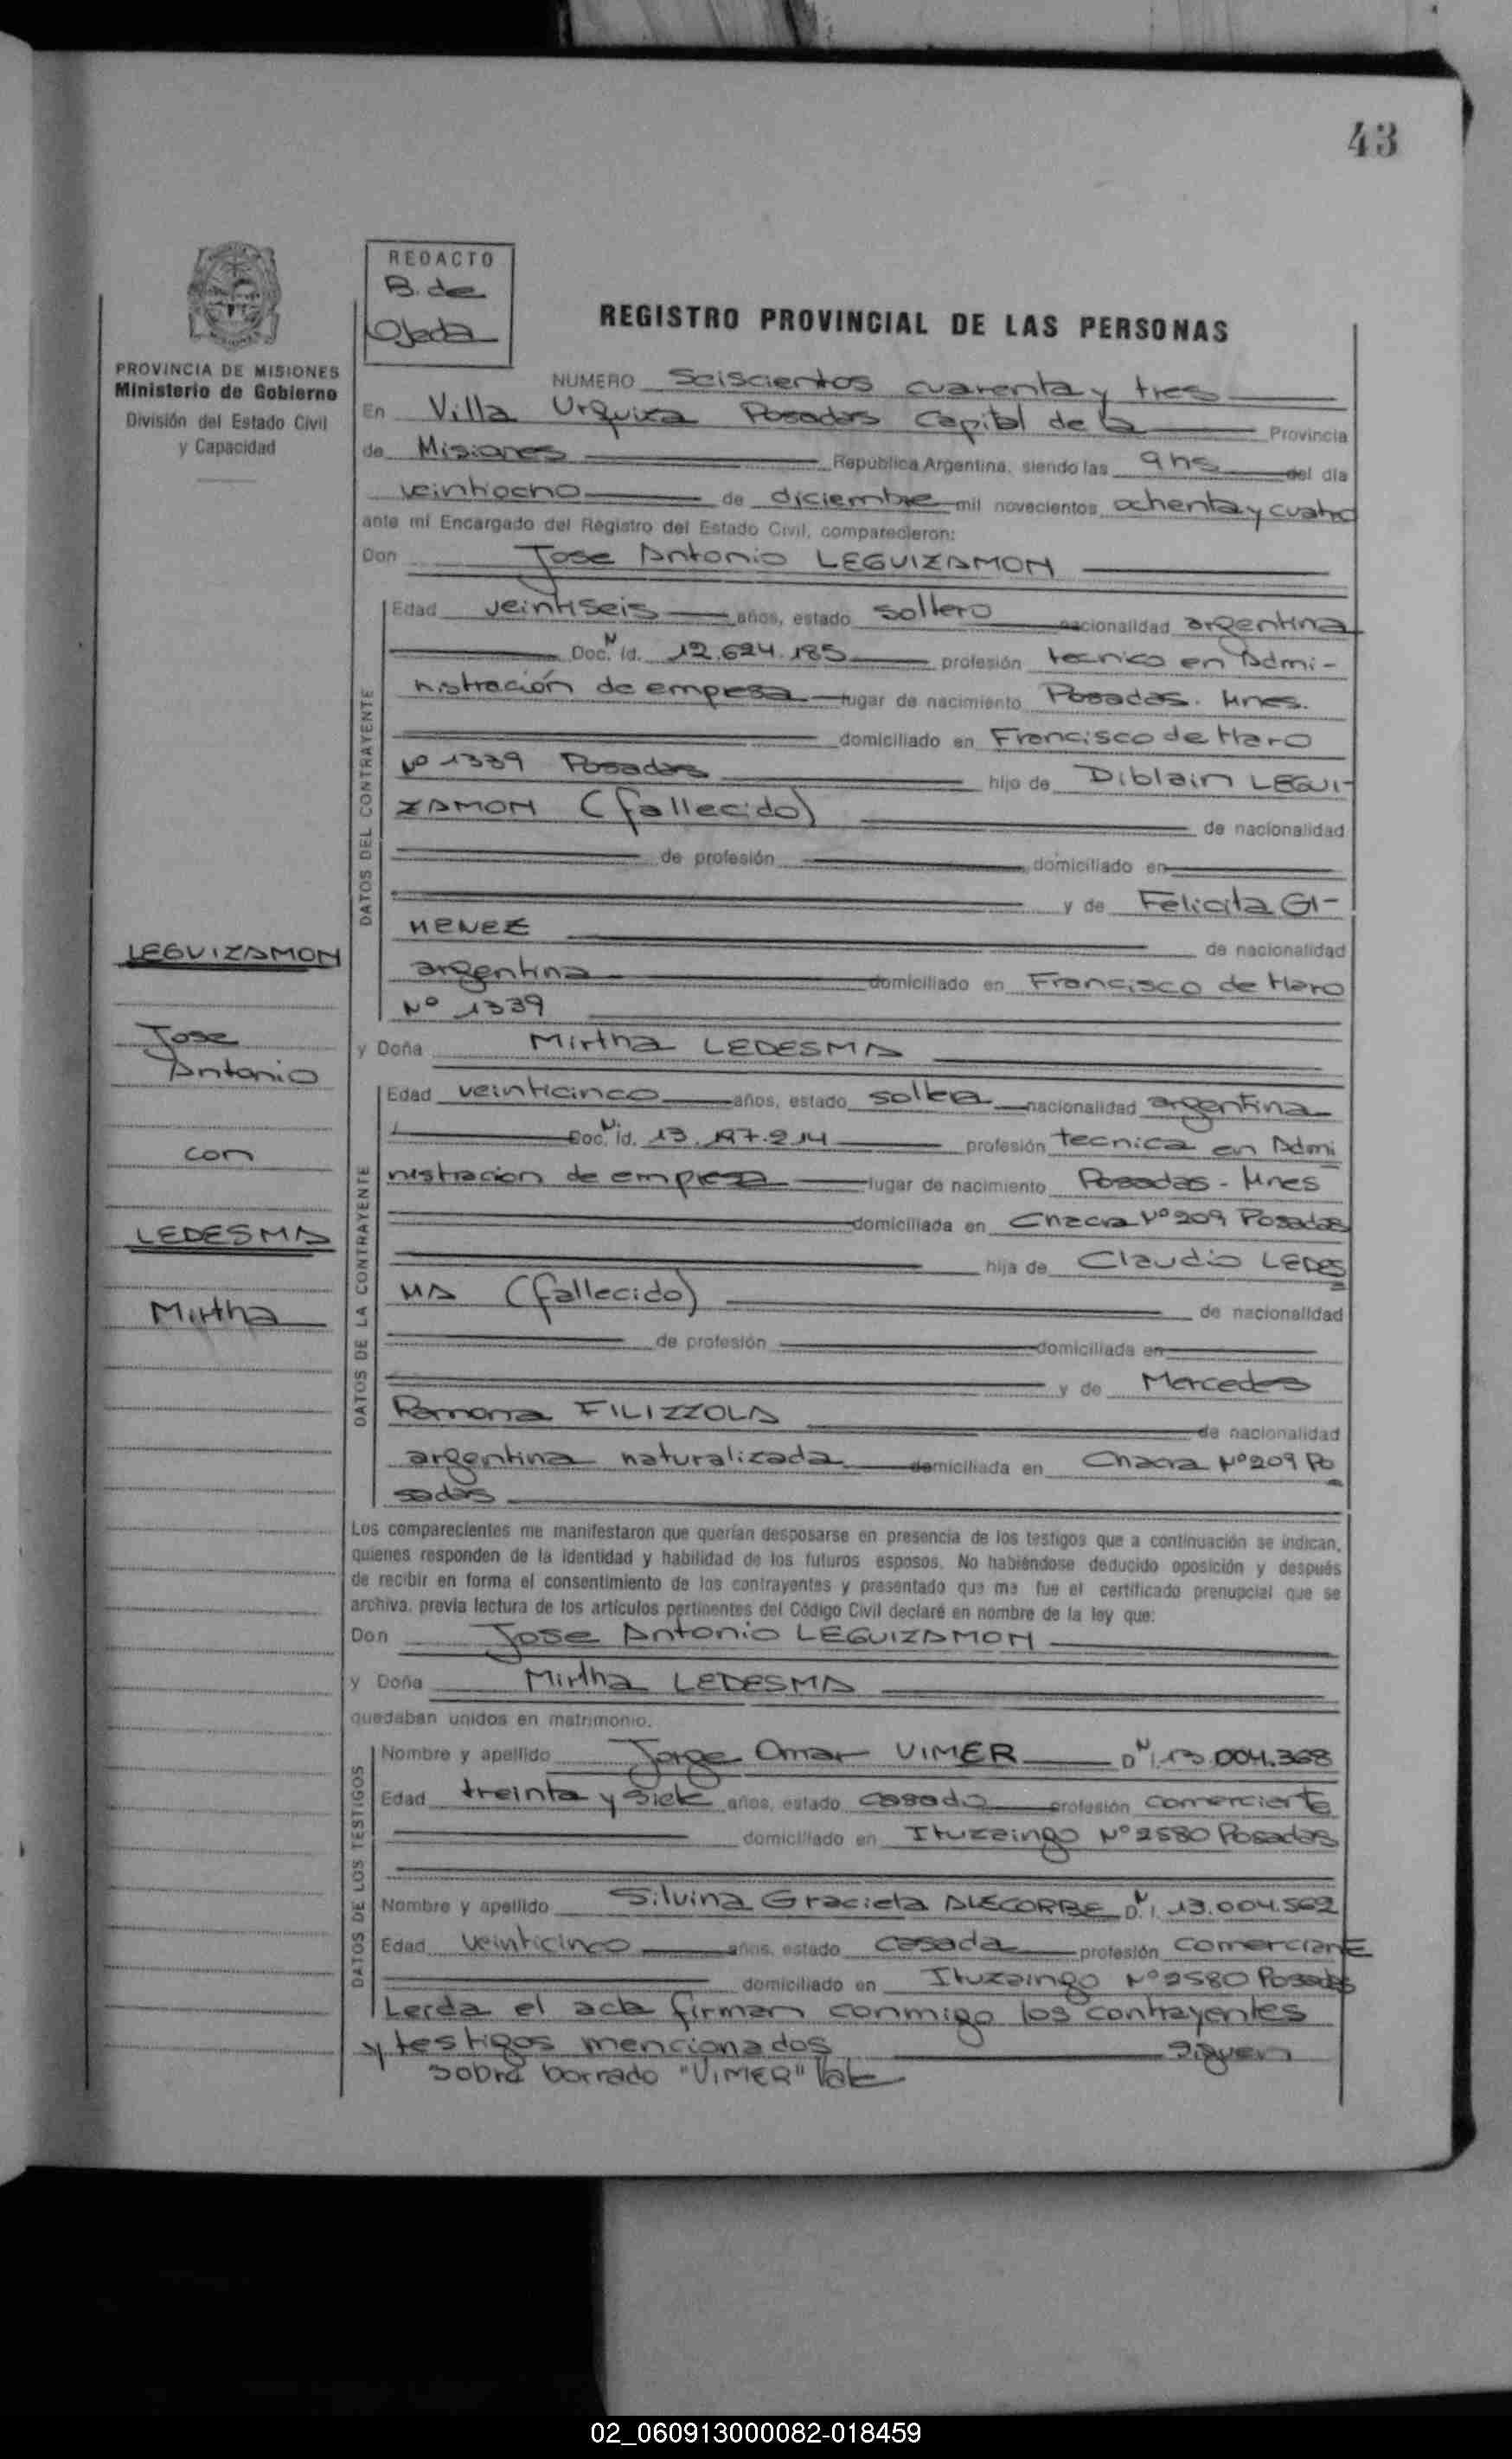 43
REDACTO
B. de
Ojeda
REGISTRO PROVINCIAL DE LAS PERSONAS
PROVINCIA DE MISIONES
Ministerio de Gobierno
División del Estado Civil
y Capacidad
NUMERO Seiscientos cuarenta y tres
En Villa Urquiza Posadas Capital de la Provincia
de Misiones Republica Argentina, siendo las 9 hs del dia
veintiocho de diciembre mil novecientos ochenta y cuatro
ante mí Encargado del Registro del Estado Civil, comparecieron:
Don Jose Antonio LEGUIZAMON
DATOS DEL CONTRAYENTE
Edad veintiseis años, estado soltero nacionalidad argentina
Doc. N Id. 12.624.185 profesión tecnico en Admi-
nistración de empresa lugar de nacimiento Posadas. Mnes.
domiciliado en Francisco de Haro
Nº 1339 Posadas hijo de Diblain LEGUI-
ZAMON (fallecido) de nacionalidad
de profesión domiciliado en
y de Felicita GI-
MENEZ de nacionalidad
argentina domiciliado en Francisco de Haro
Nº 1339
y Doña Mirtha LEDESMA
LEGUIZAMON
Jose
Antonio
con
LEDESMA
Mirtha
DATOS DE LA CONTRAYENTE
Edad veinticinco años, estado soltera nacionalidad argentina
Doc. N Id. 13.197.214 profesión tecnica en Admi
nistracion de empresa lugar de nacimiento Posadas - Mnes
domiciliada en Chacra Nº 209 Posadas
hija de Claudio LEDES
MA (fallecido) de nacionalidad
de profesión domiciliada en
y de Mercedes
Ramona FILIZZOLA de nacionalidad
argentina naturalizada domiciliada en Chacra Nº 209 Po
sadas
Los comparecientes me manifestaron que querían desposarse en presencia de los testigos que a continuación se indican,
quienes responden de la identidad y habilidad de los futuros esposos. No habiéndose deducido oposición y después
de recibir en forma el consentimiento de los contrayentes y presentado que me fue el certificado prenupcial que se
archiva, previa lectura de los artículos pertinentes del Código Civil declaré en nombre de la ley que:
Don Jose Antonio LEGUIZAMON
y Doña Mirtha LEDESMA
quedaban unidos en matrimonio.
DATOS DE LOS TESTIGOS
Nombre y apellido Jorge Omar VIMER D.N.I. 13.004.368
Edad treinta y siete años, estado casado profesión comerciante
domiciliado en Ituzaingo Nº 2580 Posadas
Nombre y apellido Silvina Graciela ALECORBE D.N.I. 13.004.562
Edad veinticinco años, estado casada profesión comerciante
domiciliado en Ituzaingo Nº 2580 Posadas
Leida el acta firman conmigo los contrayentes
y testigos mencionados siguen
sobre borrado "VIMER" Vale
02_060913000082-018459